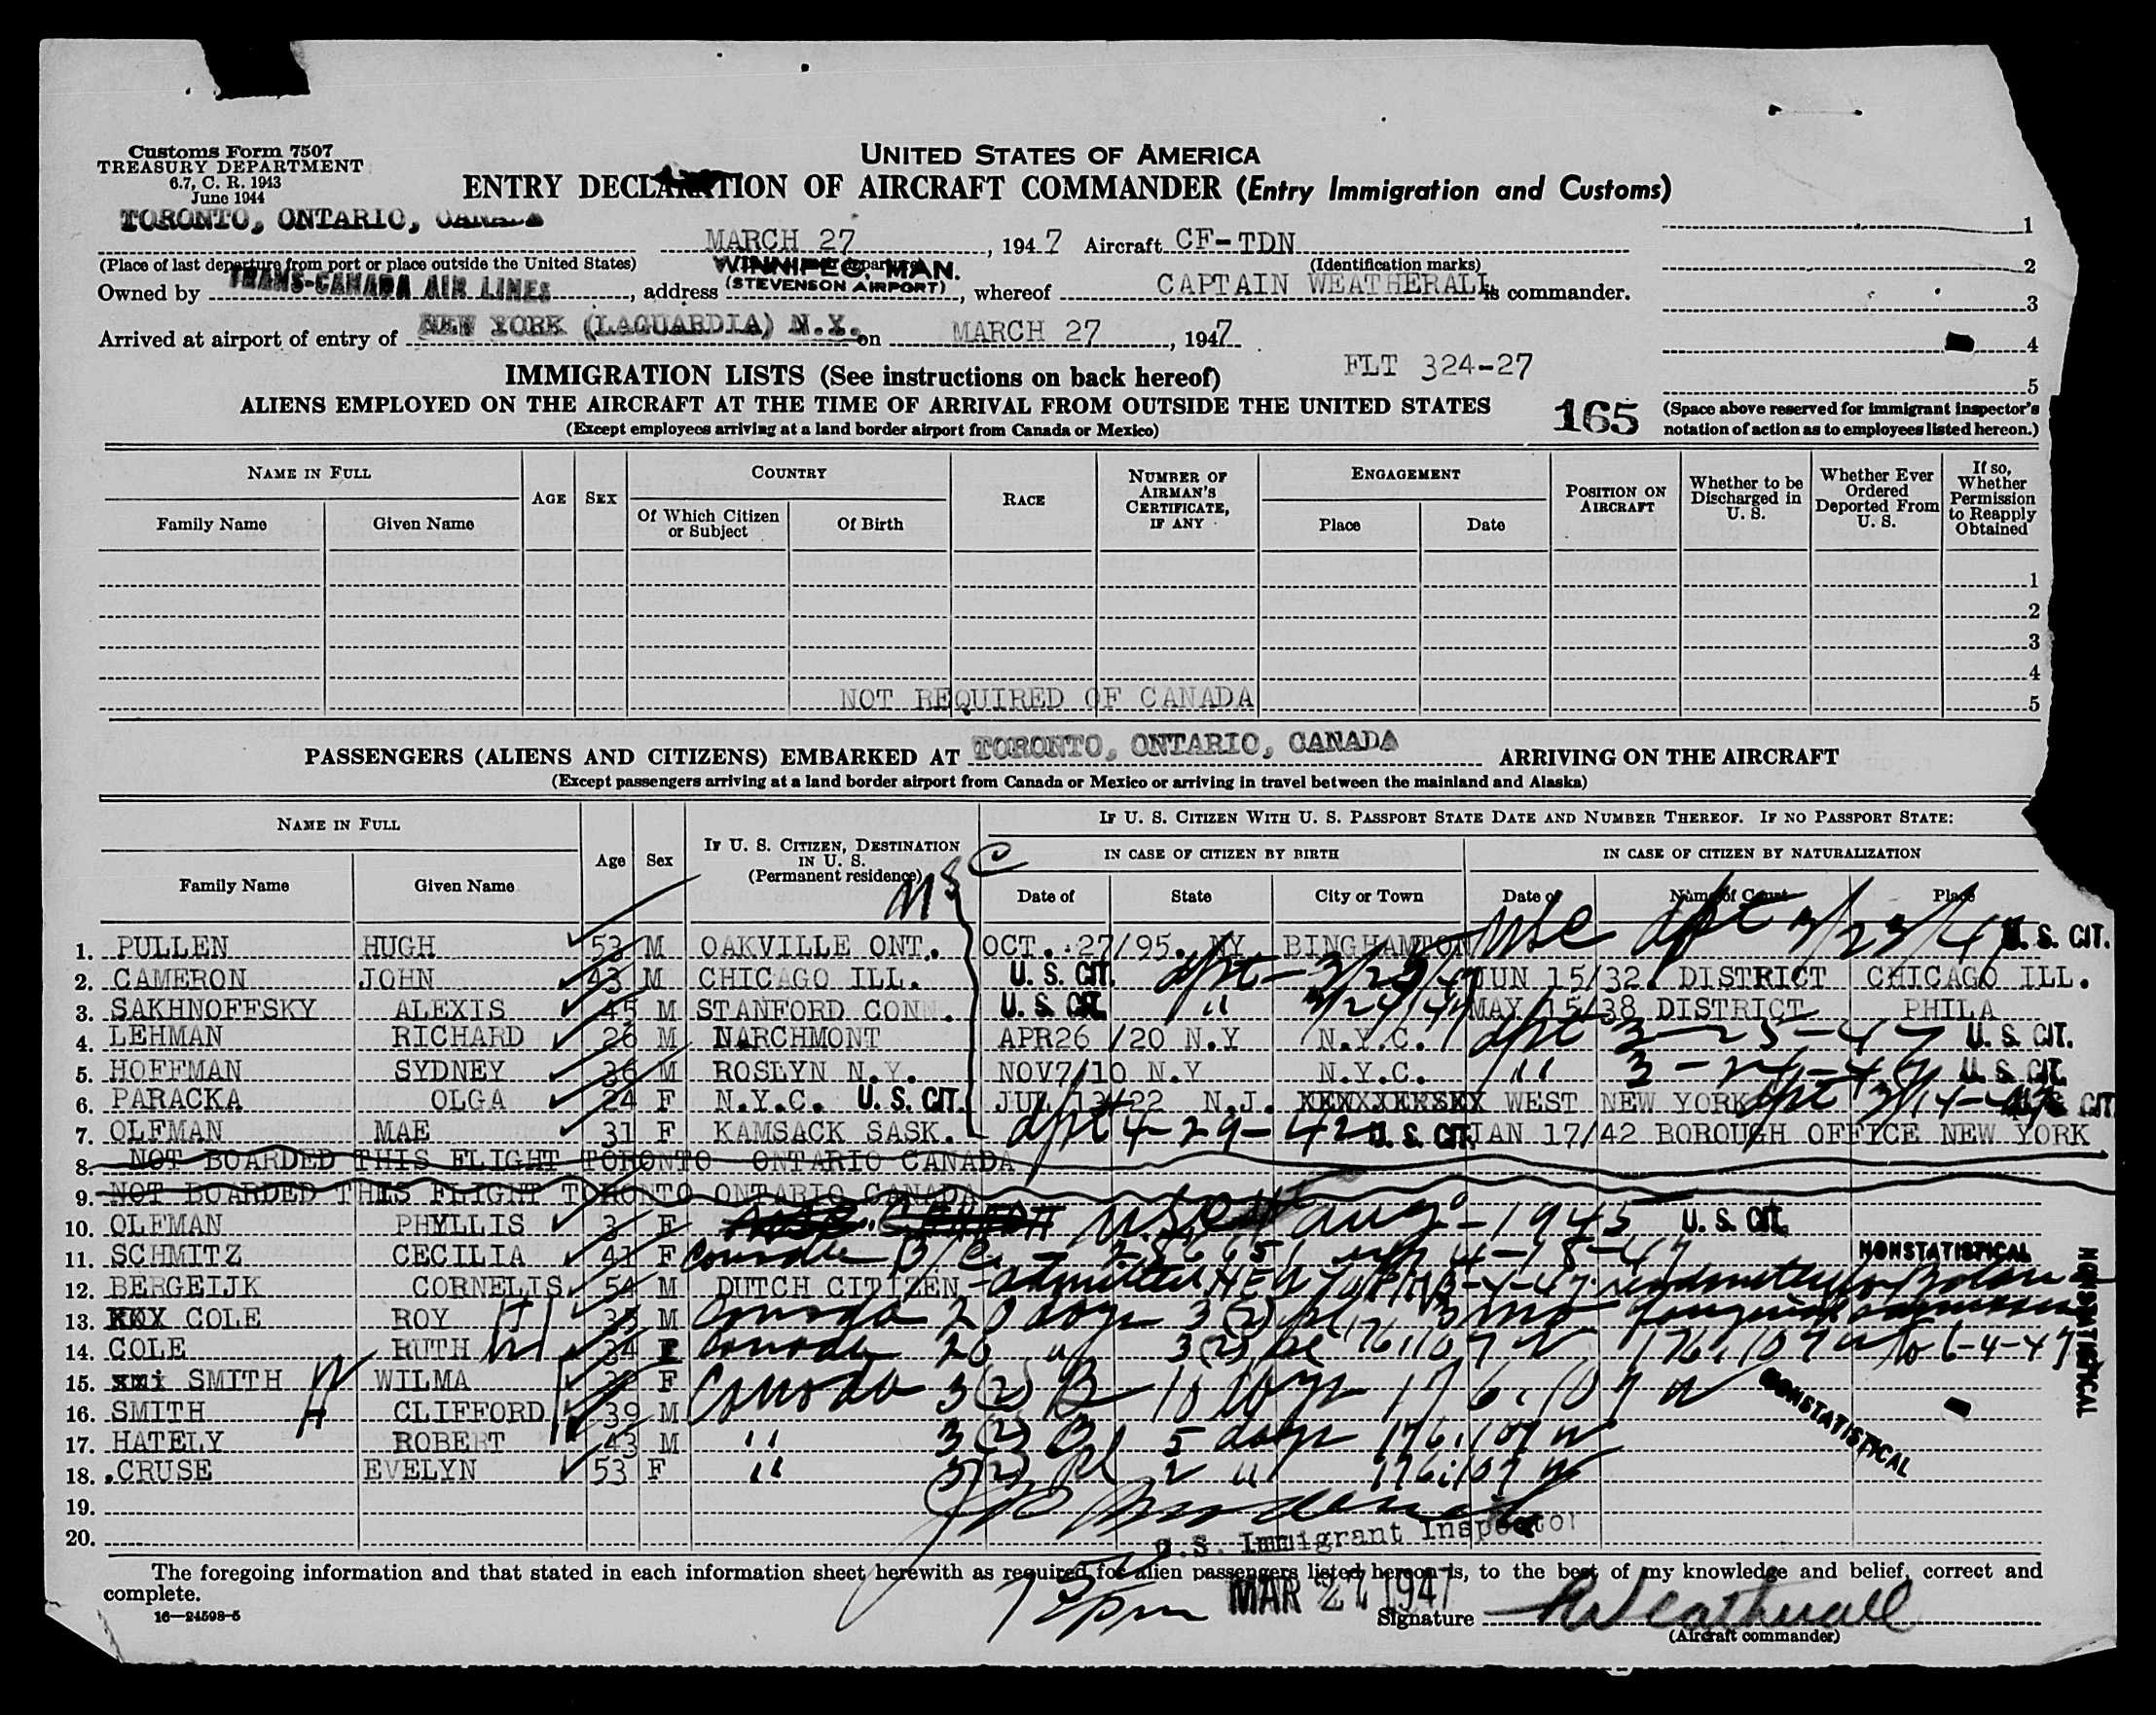 Customs Form 7507
TREASURY DEPARTMENT
6.7, C. R. 1943
June 1944
UNITED STATES OF AMERICA
ENTRY DECLARATION OF AIRCRAFT COMMANDER (Entry Immigration and Customs)
TORONTO, ONTARIO, CANADA
MARCH 27, 1947 Aircraft CF-TDN
1
(Place of last departure from port or place outside the United States) (Identification marks)
2
WINNIPEG, MAN.
(STEVENSON AIRPORT)
Owned by TRANS-CANADA AIR LINES, address, whereof CAPTAIN WEATHERALL is commander.
3
Arrived at airport of entry of NEW YORK (LAGUARDIA) N.Y. on MARCH 27, 1947.
4
FLT 324-27
5
IMMIGRATION LISTS (See instructions on back hereof)
ALIENS EMPLOYED ON THE AIRCRAFT AT THE TIME OF ARRIVAL FROM OUTSIDE THE UNITED STATES
165
(Space above reserved for immigrant inspector's notation of action as to employees listed hereon.)
(Except employees arriving at a land border airport from Canada or Mexico)
NAME IN FULL AGE SEX COUNTRY RACE NUMBER OF AIRMAN'S CERTIFICATE, IF ANY ENGAGEMENT POSITION ON AIRCRAFT Whether to be Discharged in U. S. Whether Ever Ordered Deported From U. S. If so, Whether Permission to Reapply Obtained
Family Name Given Name Of Which Citizen or Subject Of Birth Place Date
1
2
3
4
NOT REQUIRED OF CANADA 5
PASSENGERS (ALIENS AND CITIZENS) EMBARKED AT TORONTO, ONTARIO, CANADA ARRIVING ON THE AIRCRAFT
(Except passengers arriving at a land border airport from Canada or Mexico or arriving in travel between the mainland and Alaska)
NAME IN FULL Age Sex IF U. S. CITIZEN, DESTINATION IN U. S. (Permanent residence) IF U. S. CITIZEN WITH U. S. PASSPORT STATE DATE AND NUMBER THEREOF. IF NO PASSPORT STATE:
IN CASE OF CITIZEN BY BIRTH IN CASE OF CITIZEN BY NATURALIZATION
Family Name Given Name Date of State City or Town Date of Name of Court Place
USC
1. PULLEN HUGH 53 M OAKVILLE ONT. OCT. 27/95. NY BINGHAMTON USC dpt 3/23/47 U. S. CIT.
2. CAMERON JOHN 43 M CHICAGO ILL. U. S. CIT. dpt- 3/23/47 JUN 15/32. DISTRICT CHICAGO ILL.
3. SAKHNOFFSKY ALEXIS 45 M STANFORD CONN. U. S. CIT. " 3/24/47 MAY 15/38 DISTRICT PHILA
4. LEHMAN RICHARD 26 M NARCHMONT APR26 /20 N.Y N.Y.C. dpt 3-25-47 U. S. CIT.
5. HOFFMAN SYDNEY 36 M ROSLYN N.Y. NOV7/10 N.Y N.Y.C. " 3-24-47 U. S. CIT.
6. PARACKA OLGA 24 F N.Y.C. U. S. CIT. JUL 13/22 N.J. WEST NEW YORK dpt 3/14-47 U. S. CIT.
7. OLFMAN MAE 31 F KAMSACK SASK. dpt 4-29-42 U. S. CIT. JAN 17/42 BOROUGH OFFICE NEW YORK
8. NOT BOARDED THIS FLIGHT TORONTO ONTARIO CANADA
9. NOT BOARDED THIS FLIGHT TORONTO ONTARIO CANADA
10. OLFMAN PHYLLIS 3 F USC Aug - 1945 U. S. CIT.
11. SCHMITZ CECILIA 41 F Canada 4-18-47 NONSTATISTICAL
12. BERGEIJK CORNELIS 54 M DUTCH CITIZEN - admitted NEW YORK
13. COLE ROY H 35 M Canada 20 days 3(2) 3 mo
14. COLE RUTH W 34 F Canada 20 " 3(2) 176.107 176.107 to 6-4-47
15. SMITH W WILMA F Canada 3(2) B 10 days 176.107
16. SMITH H CLIFFORD 39 M
17. HATELY ROBERT 43 M " 3(2) B 5 days 176.107
18. CRUSE EVELYN 53 F " 3(2) 2 " 176.107
NONSTATISTICAL
NONSTATISTICAL
19.
20.
U.S. Immigrant Inspector
The foregoing information and that stated in each information sheet herewith as required for alien passengers listed hereon is, to the best of my knowledge and belief, correct and
complete.
MAR 27 1947
16—24598-5
Signature RWeatherall
(Aircraft commander)